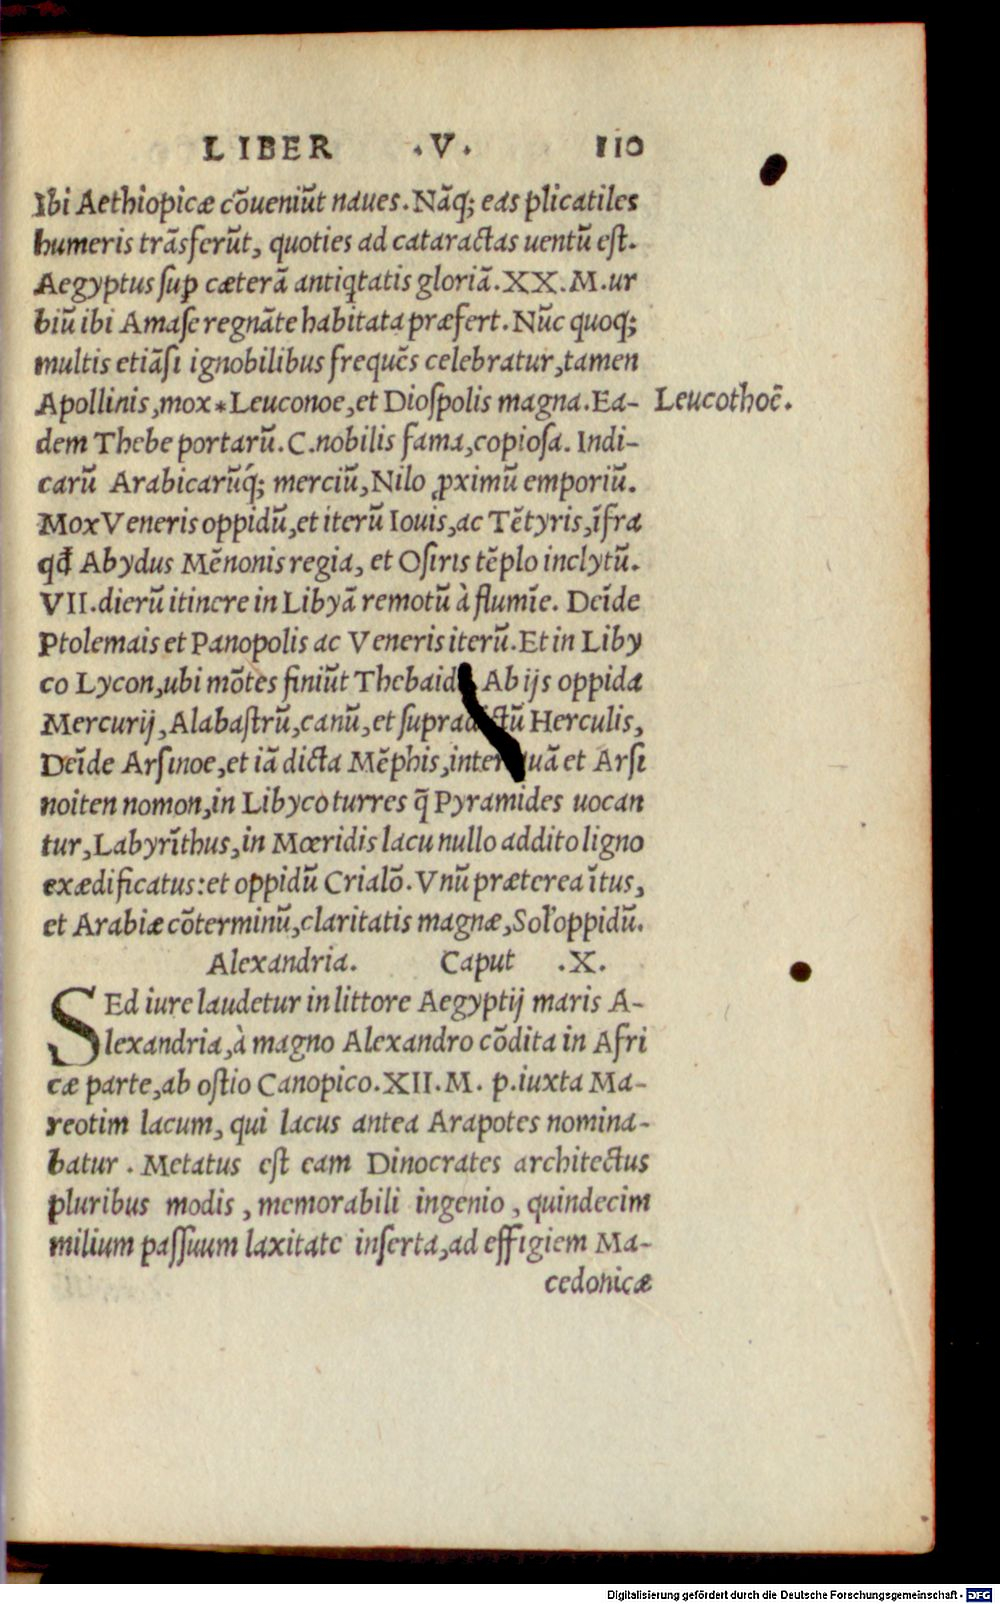 LIBER .V. 110
Ibi Aethiopicæ cõueniũt naues. Nãq; eas plicatiles
humeris trãsferũt, quoties ad cataractas uentũ est.
Aegyptus suꝑ cæterã antiqͥtatis gloriã. XX. M. ur
biũ ibi Amase regnãte habitata præfert. Nũc quoq;
multis etiãsi ignobilibus frequẽs celebratur, tamen
Apollinis, mox * Leuconoe, et Diospolis magna. Ea-
Leucothoẽ.
dem Thebe portarũ. C. nobilis fama, copiosa. Indi-
carũ Arabicarũq́; merciũ, Nilo ꝓximũ emporiũ.
Mox Veneris oppidũ, et iterũ Iouis, ac Tẽtyris, ĩfra
qđ Abydus Mẽnonis regia, et Osiris tẽplo inclytũ.
VII. dierũ itinere in Libyã remotũ à flumĩe. Deĩde
Ptolemais et Panopolis ac Veneris iterũ. Et in Liby
co Lycon, ubi mõtes finiũt Ab ijs oppida
Mercurij, Alabastrũ, canũ, et Herculis,
Deĩde Arsinoe, et iã dicta Mẽphis, inter et Arsi
noiten nomon, in Libyco turres q̃ Pyramides uocan
tur, Labyrĩthus, in Mœridis lacu nullo addito ligno
exædificatus: et oppidũ Crialõ. Vnũ præterea ĩtus,
et Arabiæ cõterminũ, claritatis magnæ, Sol' oppidũ.
Alexandria. Caput .X.
SEd iure laudetur in littore Aegyptij maris A-
lexandria, à magno Alexandro cõdita in Afri
cæ parte, ab ostio Canopico. XII. M. p. iuxta Ma-
reotim lacum, qui lacus antea Arapotes nomina-
batur. Metatus est eam Dinocrates architectus
pluribus modis, memorabili ingenio, quindecim
milium passuum laxitate inserta, ad effigiem Ma-
cedonicæ
Digitalisierung gefördert durch die Deutsche Forschungsgemeinschaft - DFG